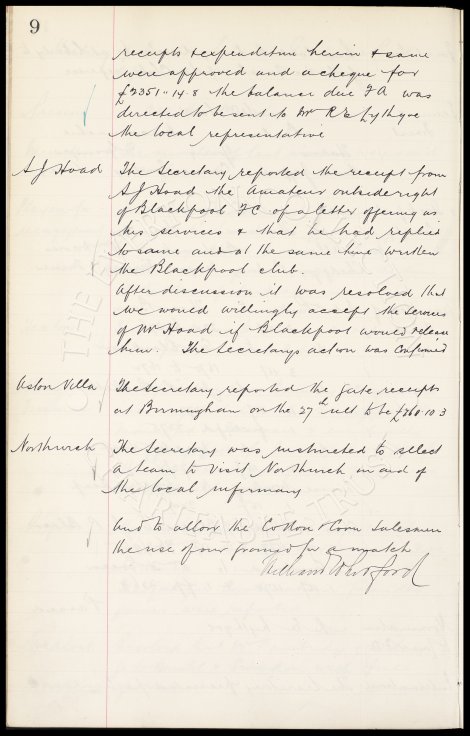 9
receipts & expenditure herein & same
were approved and a cheque for
£2351-14-8 the balance due F A was
directed to be sent to Mr R E Lythgoe
the local representative
A J Hoad The Secretary reported the receipt from
A J Hoad the Amateur outside right
of Blackpool F C of a letter offering us
his services & that he had replied
to same and at the same time written
the Blackpool club.
After discussion it was resolved that
we would willingly accept the services
of Mr Hoad if Blackpool would release
him. The Secretarys action was confirmed
Aston Villa The Secretary reported the gate receipts
at Birmingham on the 27th ult to be £760-10-3
Northwich The Secretary was instructed to select
a team to visit Northwich in aid of
the local infirmary
And to allow the Cotton & Corn Salesmen
the use of our ground for a match